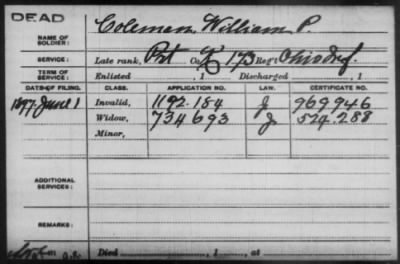 DEAD
Coleman, William P.
NAME OF SOLDIER:
SERVICE: Late rank, Pvt Co. K, 173 Reg't Ohio Inf.
TERM OF SERVICE: Enlisted , 1 Discharged , 1
DATE OF FILING. CLASS. APPLICATION NO. LAW. CERTIFICATE NO.
1897 June 1 Invalid, 1192.184 J 969.946
Widow, 734693 J 524.288
Minor,
ADDITIONAL SERVICES:
REMARKS:
Died , 1 , at